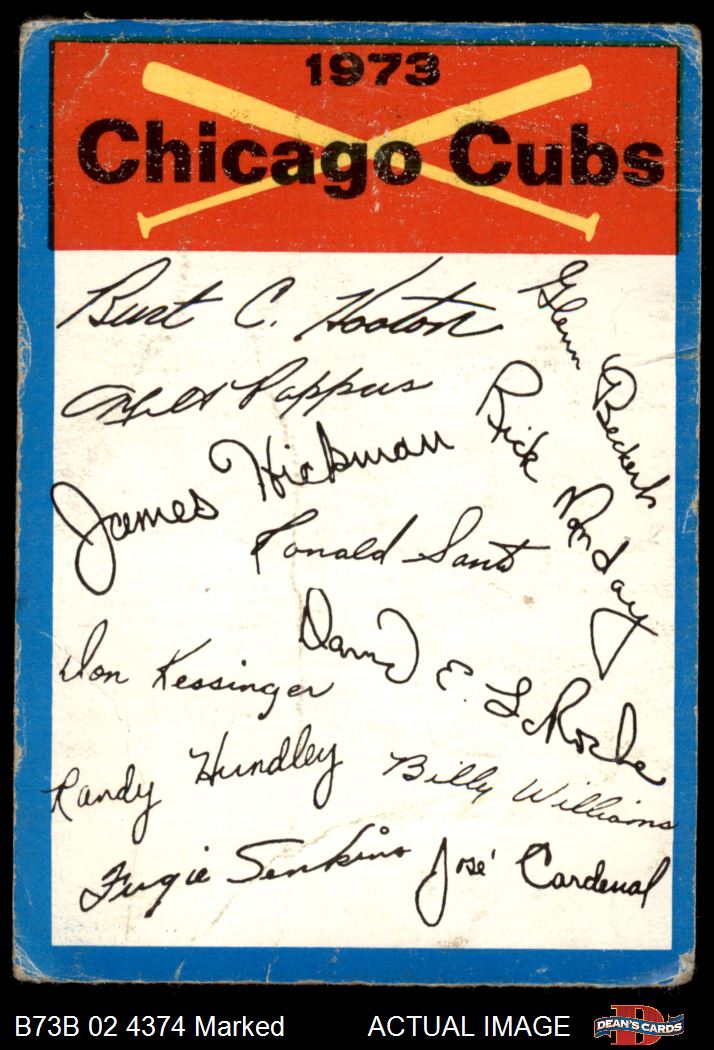 1973
Chicago Cubs
Burt C. Hooton
Glenn Beckert
Milt Pappas
Rick Monday
James Hickman
Ronald Santo
David E. LaRoche
Don Kessinger
Randy Hundley
Billy Williams
Fergie Jenkins
José Cardenal
B73B 02 4374 Marked
ACTUAL IMAGE
D
DEAN'S CARDS